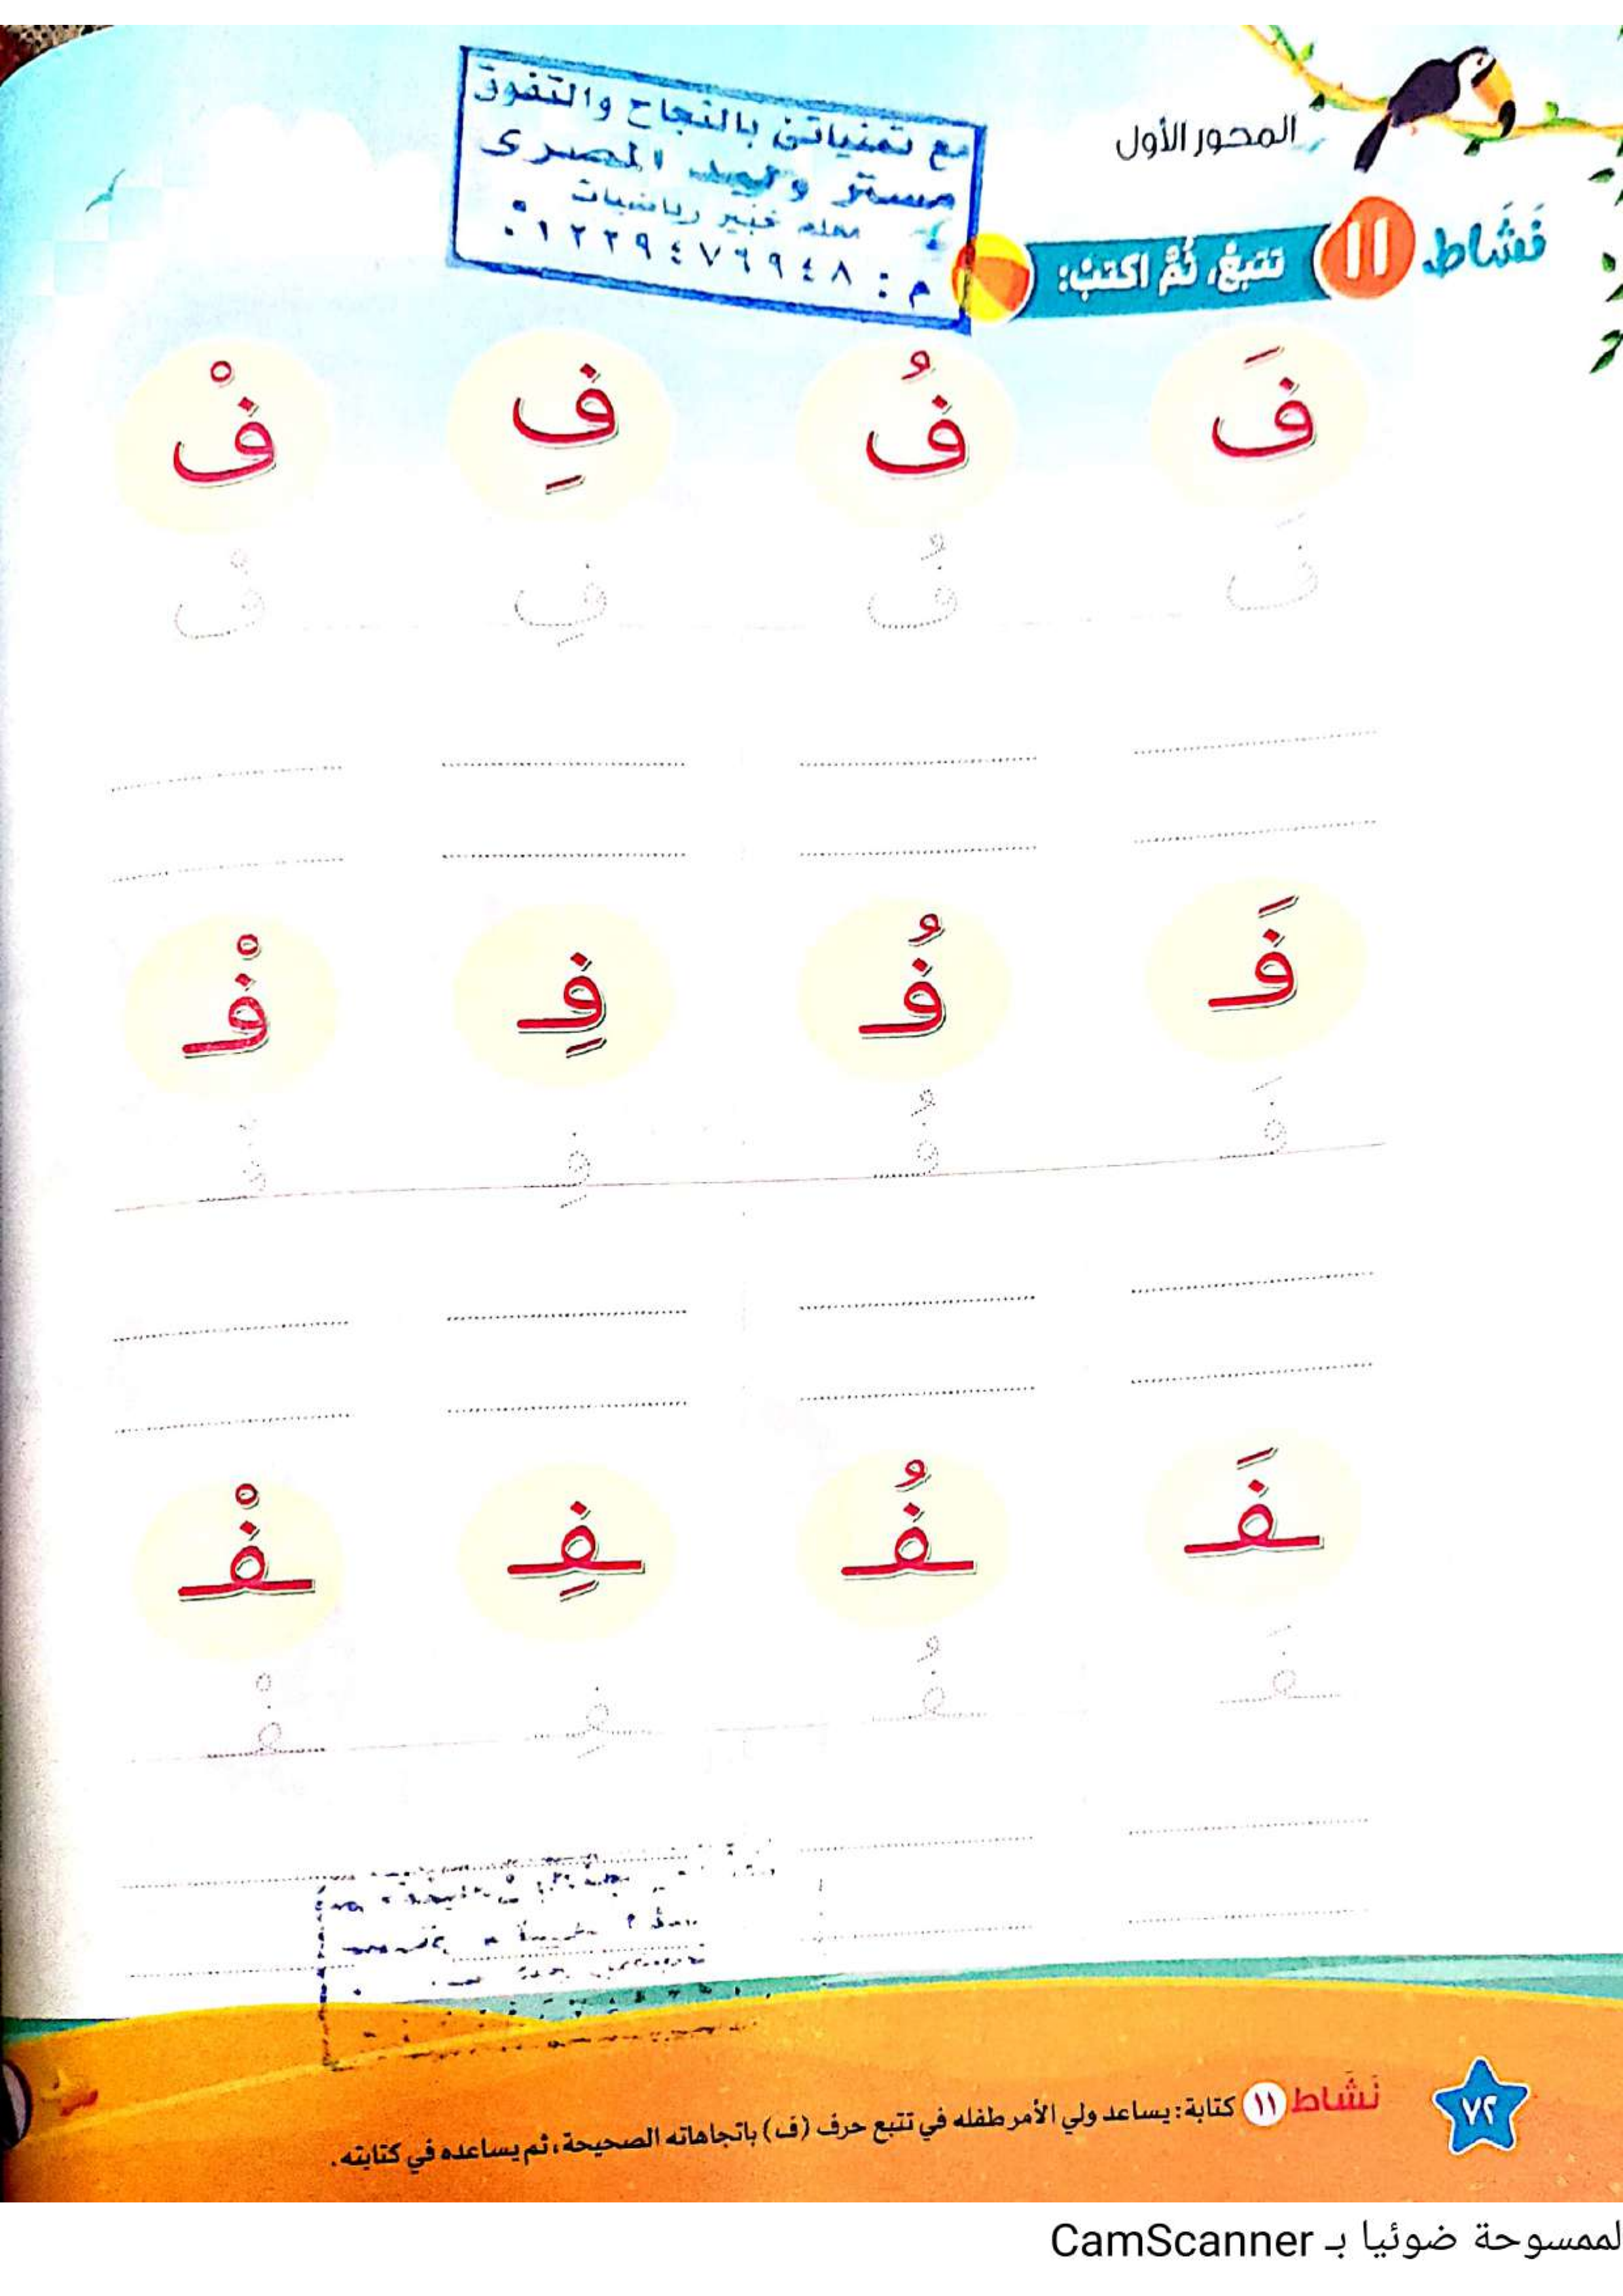 المحور الأول
مع تمنياتى بالنجاح والتفوق
مستر وليد المصرى
معلم خبير رياضيات
م : ٠١٢٢٩٤٧٦٩٤٨
نَشَاط ١١ تتبعْ، ثُمَّ اكتبْ:
فَ فُ فِ فْ
فَ فُ فِ فْ
فَـ فُـ فِـ فْـ
فَـ فُـ فِـ فْـ
ـفَـ ـفُـ ـفِـ ـفْـ
ـفَـ ـفُـ ـفِـ ـفْـ
نَشَاط ١١ كتابة: يساعد ولي الأمر طفله في تتبع حرف (ف) باتجاهاته الصحيحة، ثم يساعده في كتابته.
٧٢
لممسوحة ضوئيا بـ CamScanner